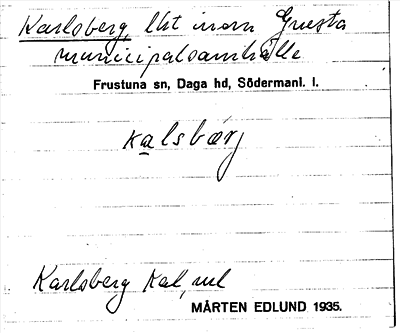 Karlsberg, lht inom Gnesta
municipalsamhälle
Frustuna sn, Daga hd, Södermanl. l.
kalsbærj
Karlsberg Kal, ul
MÅRTEN EDLUND 1935.